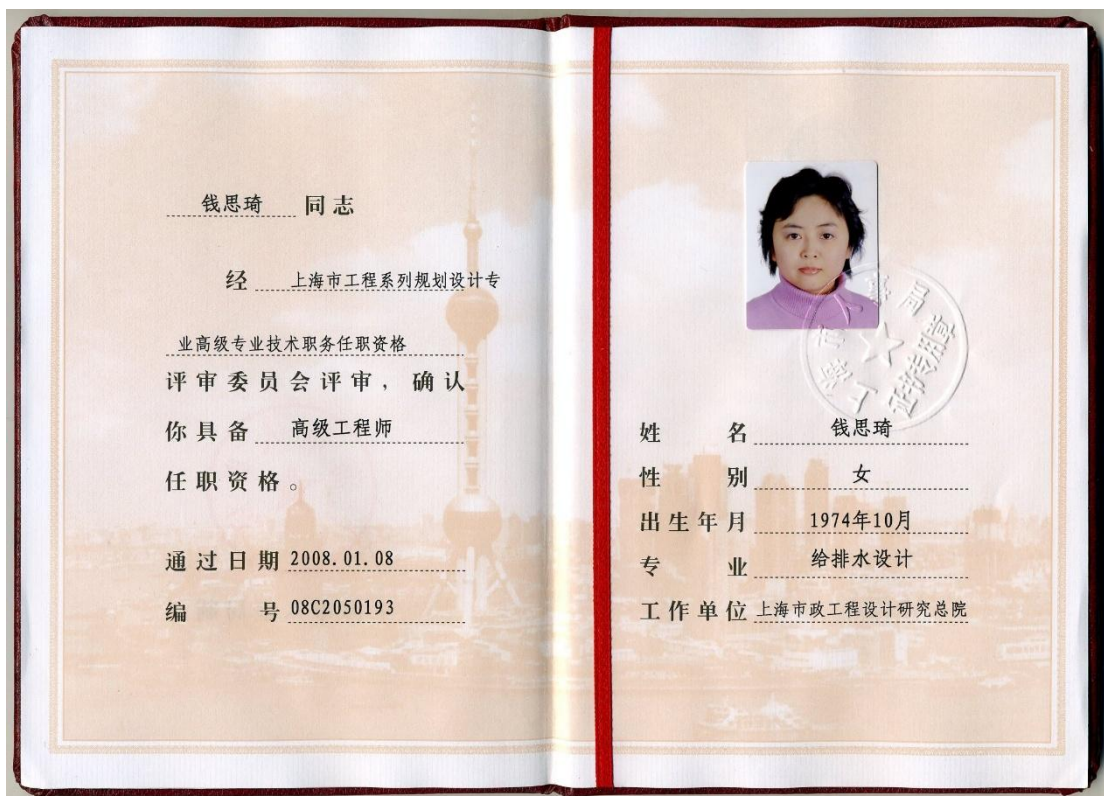 钱思琦 同志
经 上海市工程系列规划设计专
业高级专业技术职务任职资格
评审委员会评审，确认
你具备 高级工程师
任职资格。
通过日期 2008.01.08
编号 08C2050193
姓名 钱思琦
性别 女
出生年月 1974年10月
专业 给排水设计
工作单位 上海市政工程设计研究总院